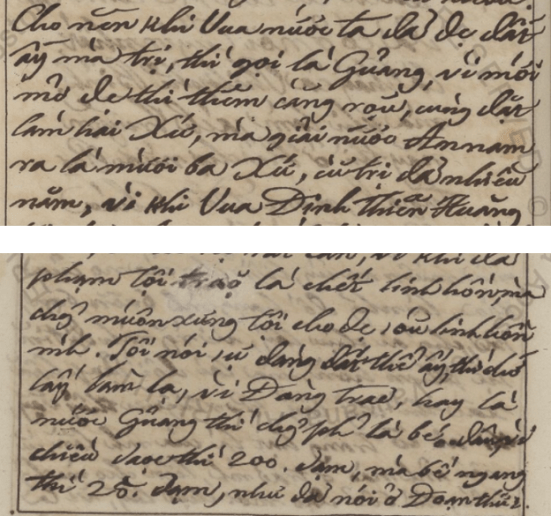 Cho nên khi Vua nước ta đã dẹ đất
ấy mà trị, thì gọi là Quảng, vì mới
mở đe thì thêm càng rộụ, cũng đặt
làm hai Xứ, mà giải nước Annam
ra là mười ba Xứ, cứ trị đã nhiều
năm, vì khi Vua Đinh thiên Hoàng
vì khi đã
phạm tội traọ là chết linh hồn, mà
chg̉ muốn xưng tội cho đẹ linh hồn
mình. Tôi nói sự đàng đất thể ấy, thì chớ
lấy làm lạ, vì Đàng trao, hay là
nước Quảng thì chg̉ ph̉ là bé
chiều daoc thì 200. dạm, mà bề ngang
thì 25. dạm, như đã nói ở Đoạn thứ 2.